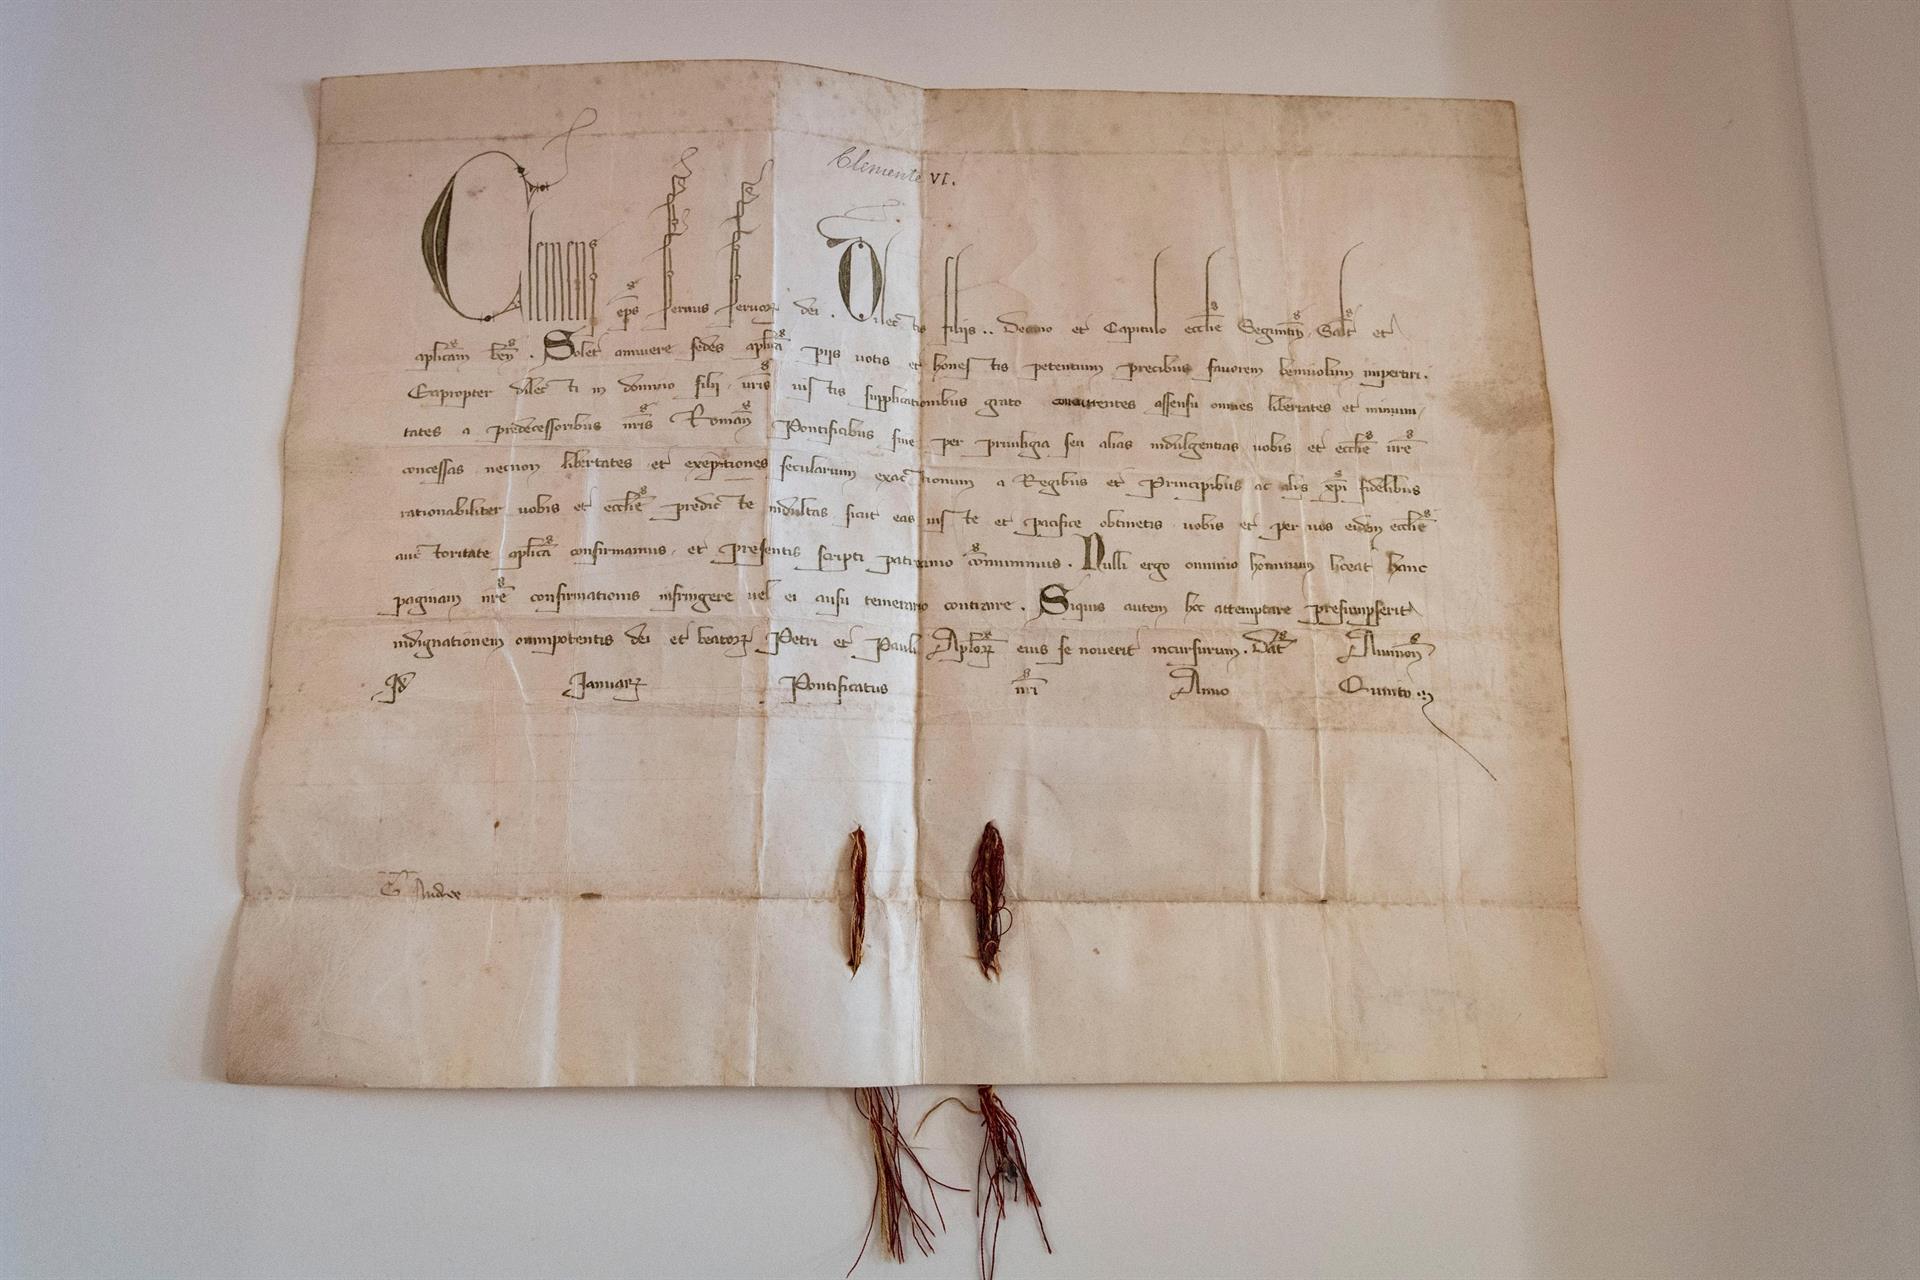 Clemente VI.
Clemens eps seruus seruoꝝ dei . Dilectis filijs .. Decano et Capitulo ecclie Seguntin Salt et
aplicam ben . Solet annuere sedes aplica pijs uotis et honestis petentium precibus fauorem beniuolum impertiri .
Eapropter dilecti in domino filij uris iustis supplicationibus grato concurrentes assensu omnes libertates et inmuni,
tates a predecessoribus nris Roman Pontificibus siue per priuilegia seu alias indulgentias uobis et ecclie ure
concessas necnon libertates et exemptiones secularium exactionum a Regibus et Principibus ac alijs xpi fidelibus
rationabiliter uobis et ecclie predicte indultas sicut eas iuste et pacifice obtinetis uobis et per uos eidem ecclie
auctoritate aplica confirmamus . et presentis scripti patrocinio comunimus . Nulli ergo omnino hominum liceat hanc
paginam nre confirmationis infringere uel ei ausu temerario contraire . Siquis autem hoc attemptare presumpserit
indignationem omnipotentis dei et beatoꝝ Petri et Pauli Aploꝝ eius se nouerit incursurum . Dat Auinion
Januaꝝ Pontificatus nri Anno Quinto
Andree